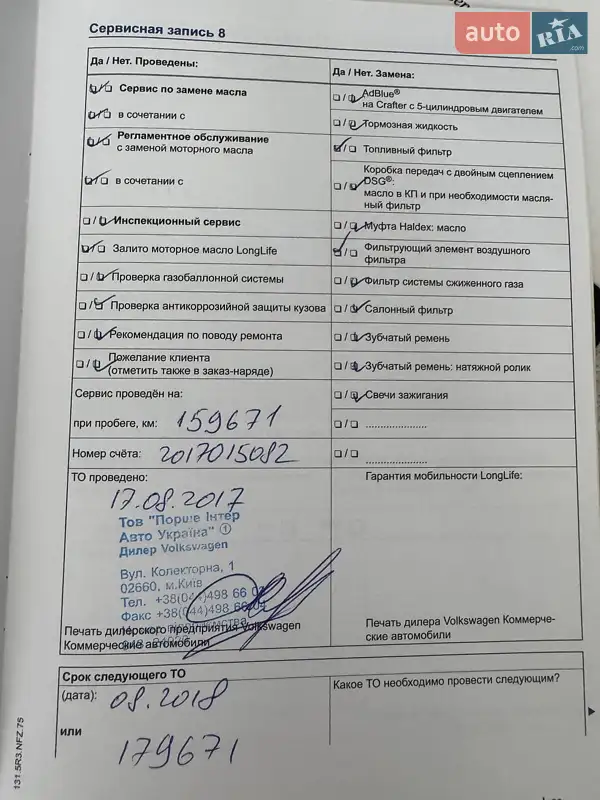 auto RIA .com
Сервисная запись 8
Да / Нет. Проведены:
Сервис по замене масла
в сочетании с
Регламентное обслуживание
с заменой моторного масла
в сочетании с
Инспекционный сервис
Залито моторное масло LongLife
Проверка газобаллонной системы
Проверка антикоррозийной защиты кузова
Рекомендация по поводу ремонта
Пожелание клиента
(отметить также в заказ-наряде)
Сервис проведён на:
при пробеге, км: 159671
Номер счёта: 2017015082
ТО проведено:
17.08.2017
Тов "Порше Інтер
Авто Україна" 1
Дилер Volkswagen
Вул. Колекторна, 1
02660, м.Київ
Тел. +38(044)498 66
Факс +38(044)498 66 04
Печать дилерского предприятия Volkswagen
Коммерческие автомобили
Да / Нет. Замена:
AdBlue®
на Crafter с 5-цилиндровым двигателем
Тормозная жидкость
Топливный фильтр
Коробка передач с двойным сцеплением
DSG®:
масло в КП и при необходимости масля-
ный фильтр
Муфта Haldex: масло
Фильтрующий элемент воздушного
фильтра
Фильтр системы сжиженного газа
Салонный фильтр
Зубчатый ремень
Зубчатый ремень: натяжной ролик
Свечи зажигания
.....................
.....................
Гарантия мобильности LongLife:
Печать дилера Volkswagen Коммерче-
ские автомобили
Срок следующего ТО
(дата): 08.2018
или
179671
Какое ТО необходимо провести следующим?
131.5R3.NFZ.75